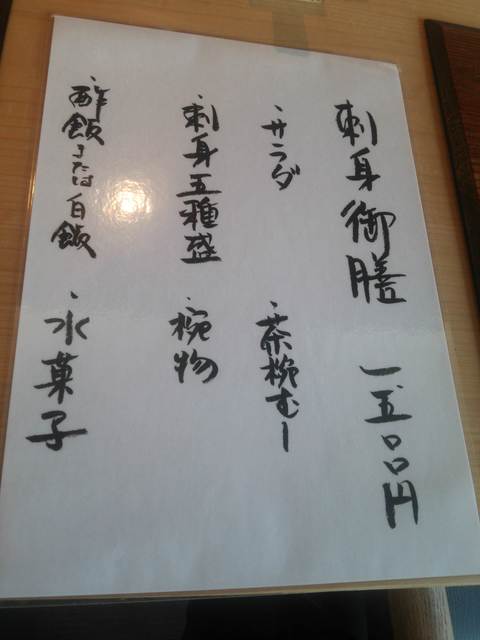 刺身御膳 一、五〇〇円
・サラダ ・茶椀むし
・刺身五種盛 ・椀物
・酢飯または白飯 ・水菓子